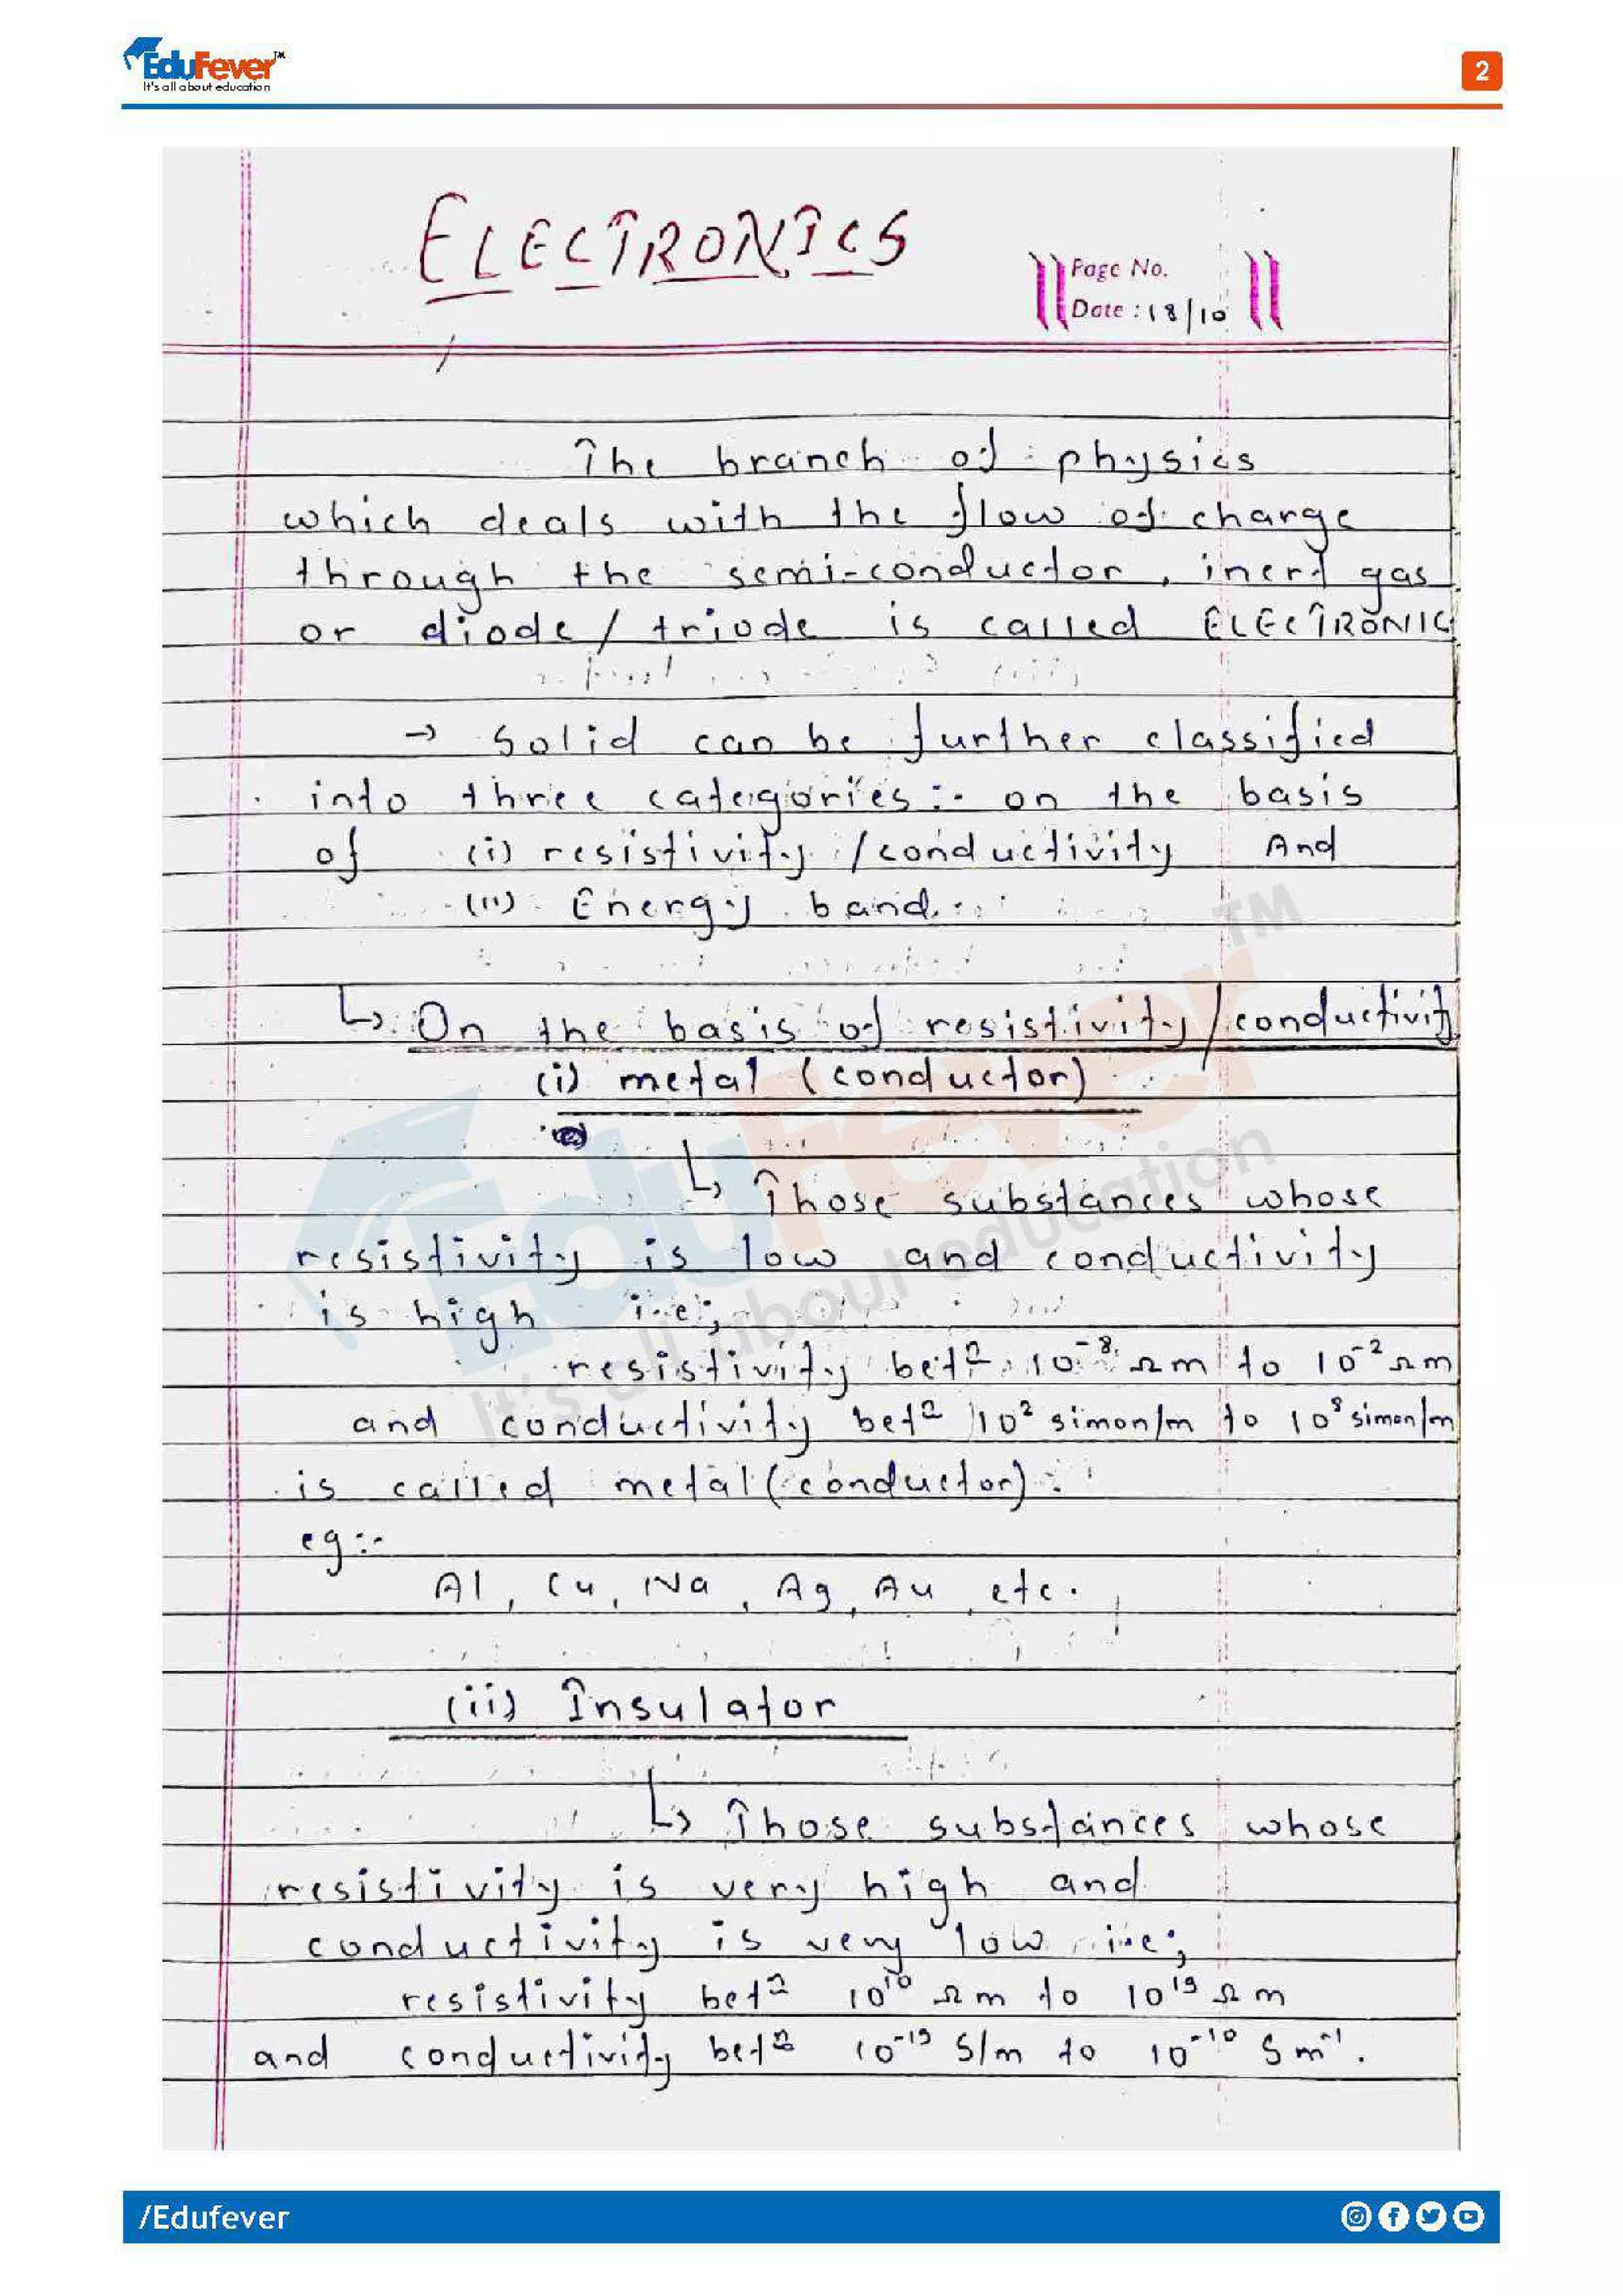 EduFever™
It's all about education
2
ELECTRONICS
Page No.
Date : 18/10
The branch of physics
which deals with the flow of charge
through the semi-conductor, inert gas
or diode/triode is called ELECTRONIC
→ Solid can be further classified
into three categories:- on the basis
of (i) resistivity/conductivity And
(ii) Energy band.
↳ On the basis of resistivity/conductivity
(i) metal (conductor)
↳ Those substances whose
resistivity is low and conductivity
is high i.e;
resistivity betⁿ 10⁻⁸ Ωm to 10⁻² Ωm
and conductivity betⁿ 10² simon/m to 10⁸ simon/m
is called metal (conductor).
eg:-
Al, Cu, Na, Ag, Au, etc.
(ii) Insulator
↳ Those substances whose
resistivity is very high and
conductivity is very low i.e;
resistivity betⁿ 10¹⁰ Ωm to 10¹⁹ Ωm
and conductivity betⁿ 10⁻¹⁹ S/m to 10⁻¹⁰ Sm⁻¹.
EduFever™
It's all about education
/Edufever